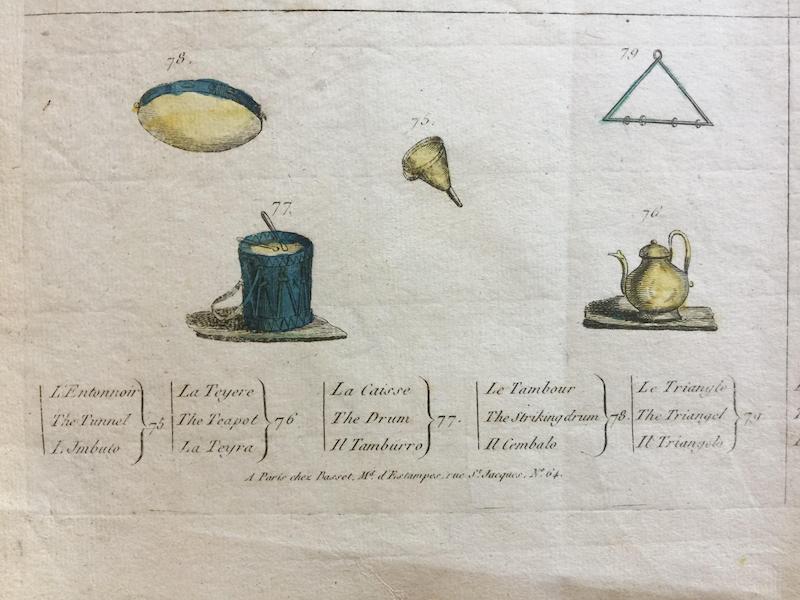 78.
79
75.
77.
76
L'Entonnoir
The Tunnel
L'Imbuto
75
La Teyere
The Teapot
La Teyra
76
La Caisse
The Drum
Il Tamburro
77.
Le Tambour
The Striking drum
Il Cembalo
78.
Le Triangle
The Triangel
Il Triangelo
79
A Paris chez Basset, Md. d'Estampes, rue St. Jacques, No. 64.